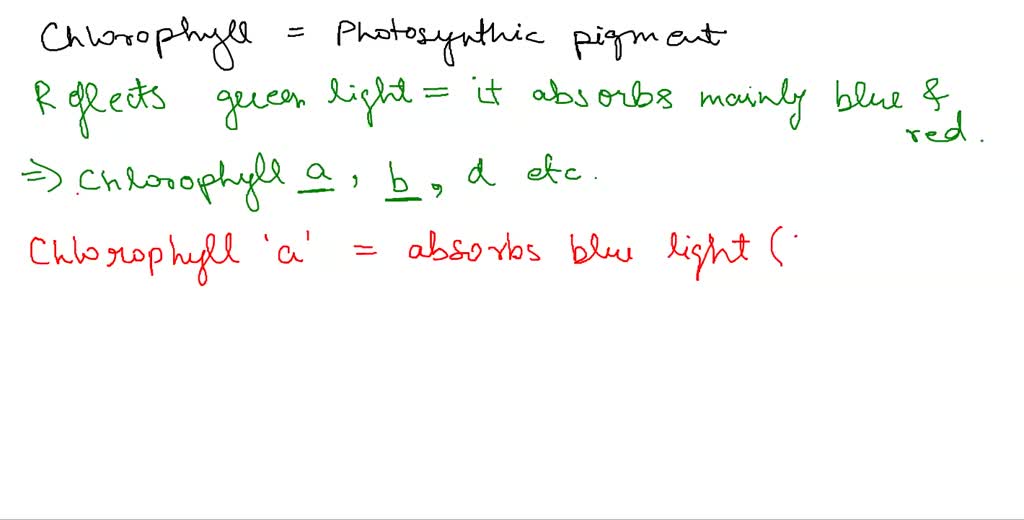 Chlorophyll = Photosynthic pigment
Reflects green light = it absorbs mainly blue & red.
=> Chlorophyll a, b, d etc.
Chlorophyll 'a' = absorbs blue light (